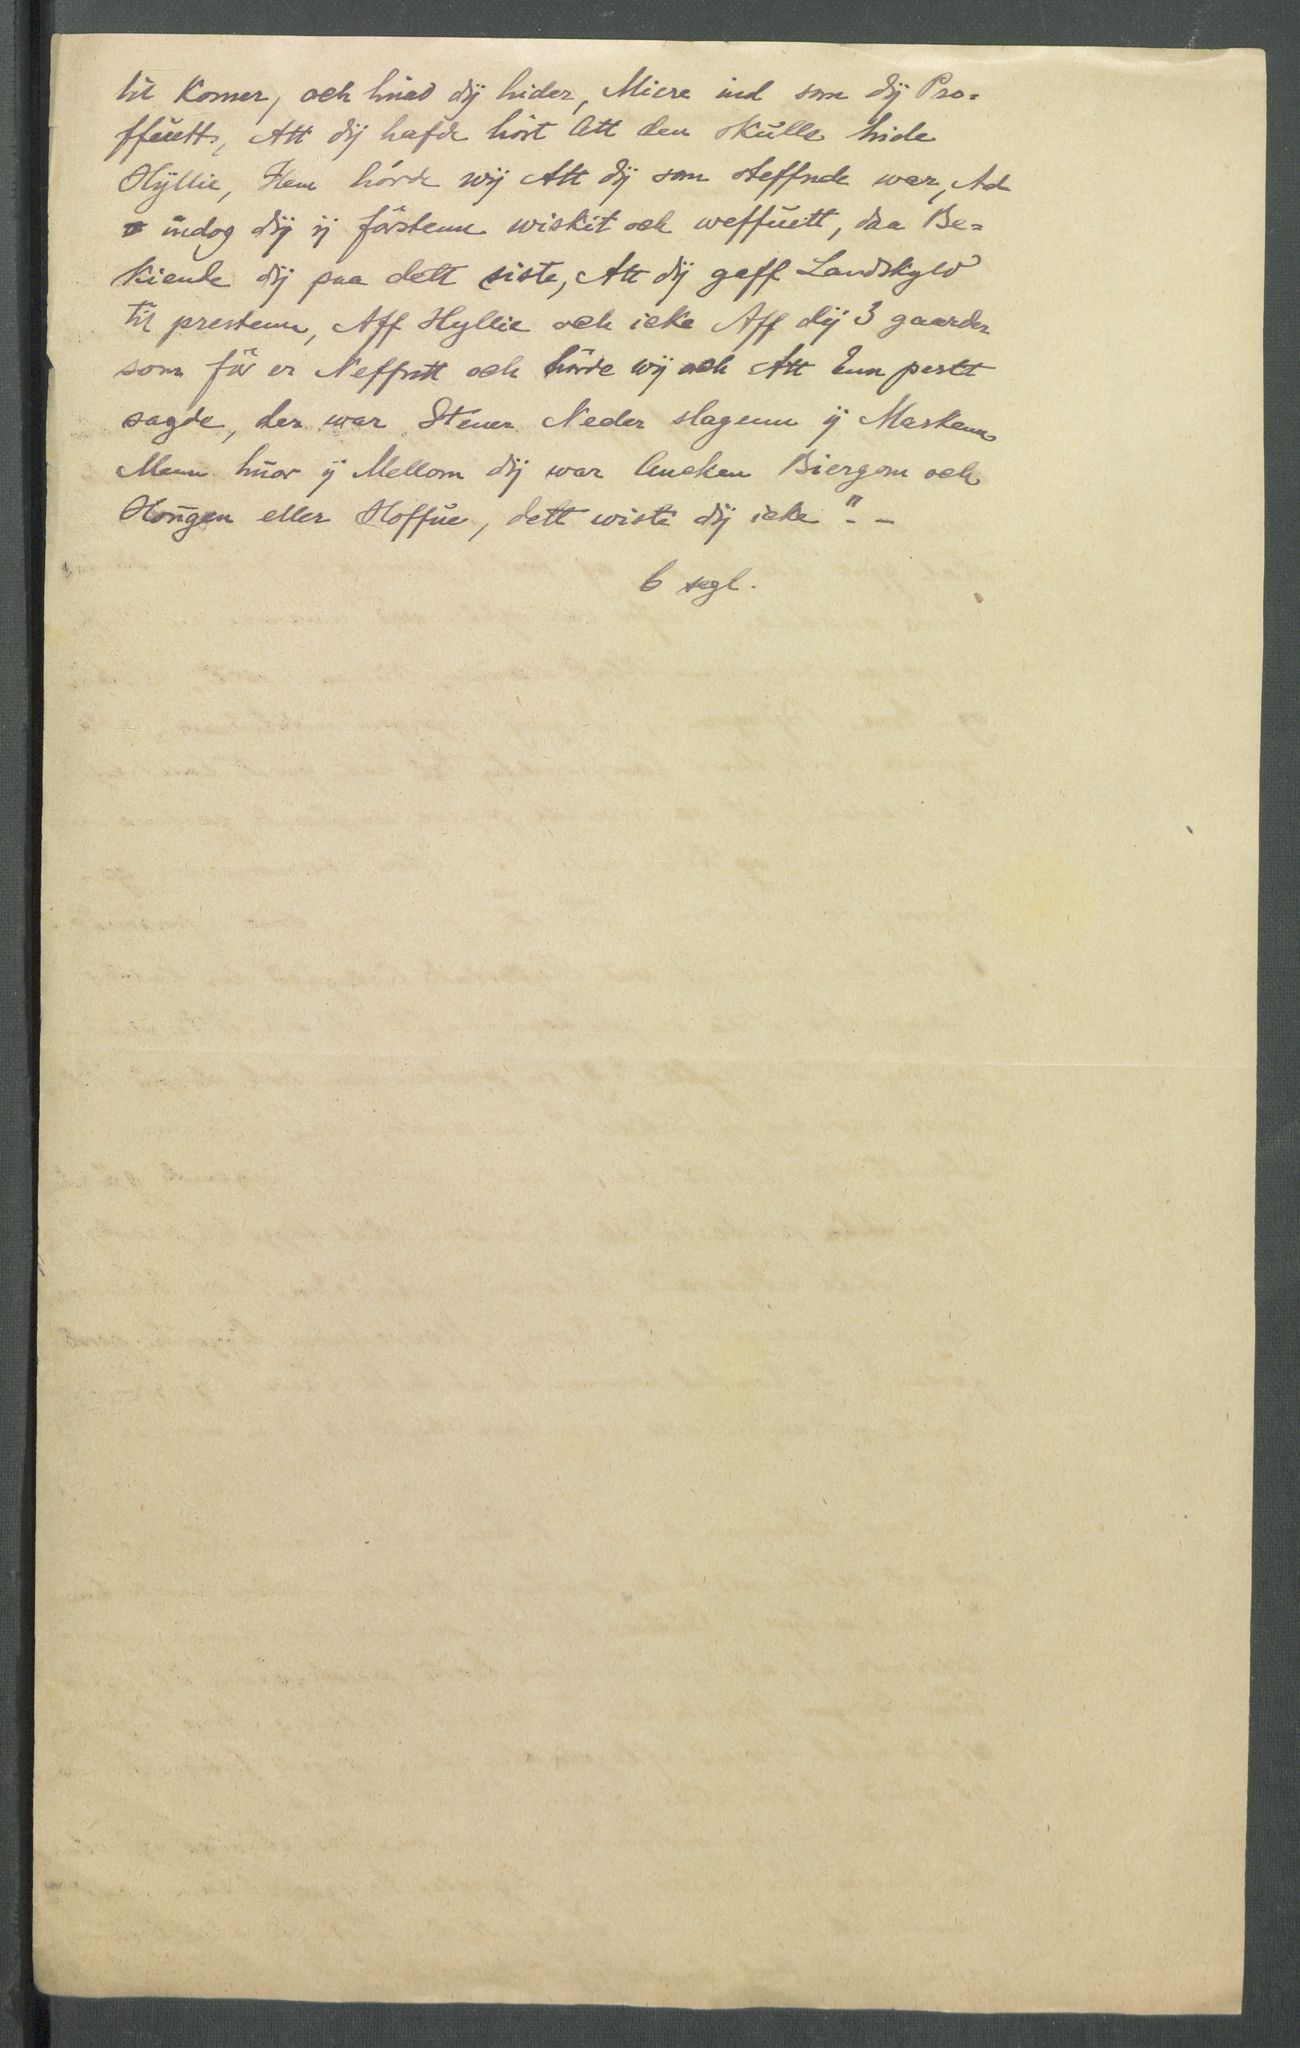 til Komer, och huad dij hider, Miere ind som dij Pro=
ffuett, Att dij hafde hört Att den skulle hide
Hyllie, Item hörde wij Att dij som steffnde war, Ad
indog dij ij förstenn wiskit och weffuett, daa Be=
kiende dij paa dett siste, Att dij geff Landskyld
til prestenn, Aff Hyllie och icke Aff dij 3 gaarder
som för er Neffntt och hörde wij och Att Enn partt
sagde, der war Stener Neder slagenn ij Markenn
Menn huor ij Mellom dij war Ancken Biergom och
Hougen eller Hoffue, dett wiste dij icke". -
6 segl.